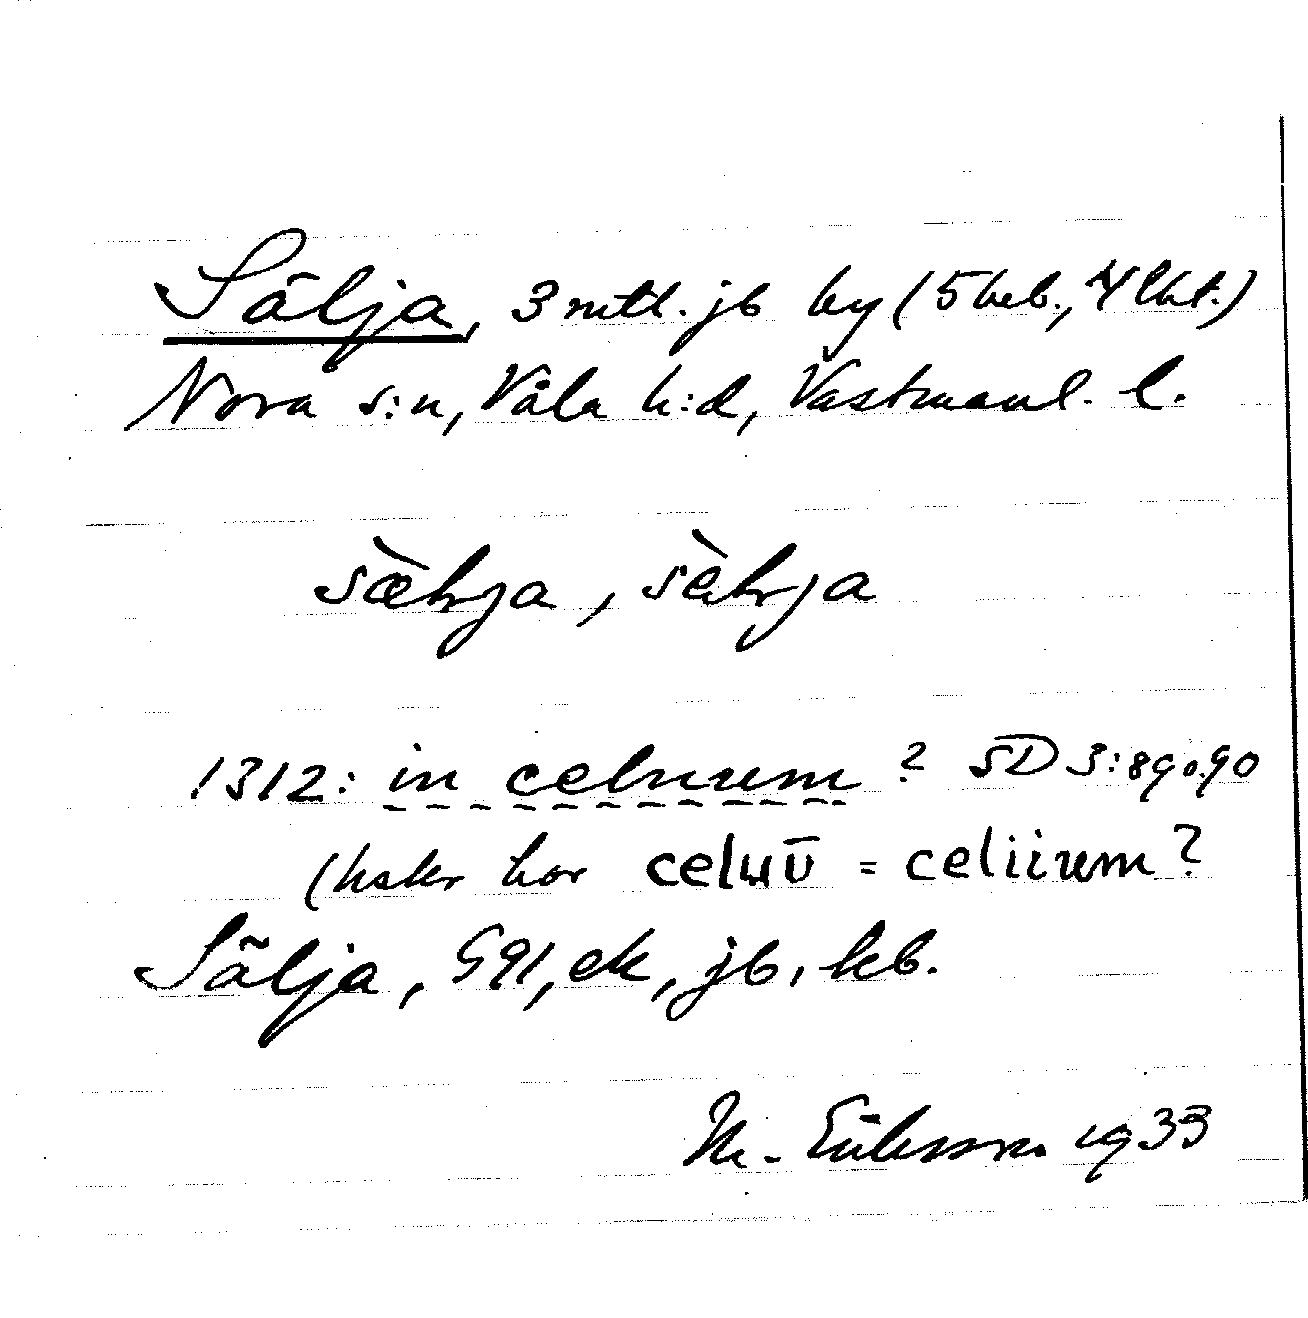 Sälja, 3 mtl. jb by (5 heb., 4 lht.)
Nora s:n, Våla h:d, Västmanl. l.
sæ̀lvja, sèlvja
1312: in celnuum ? SD 3:89o.90
(hskr har = celiium ?
Sälja, G91, ek, jb, kb.
M. Eriksson 1933